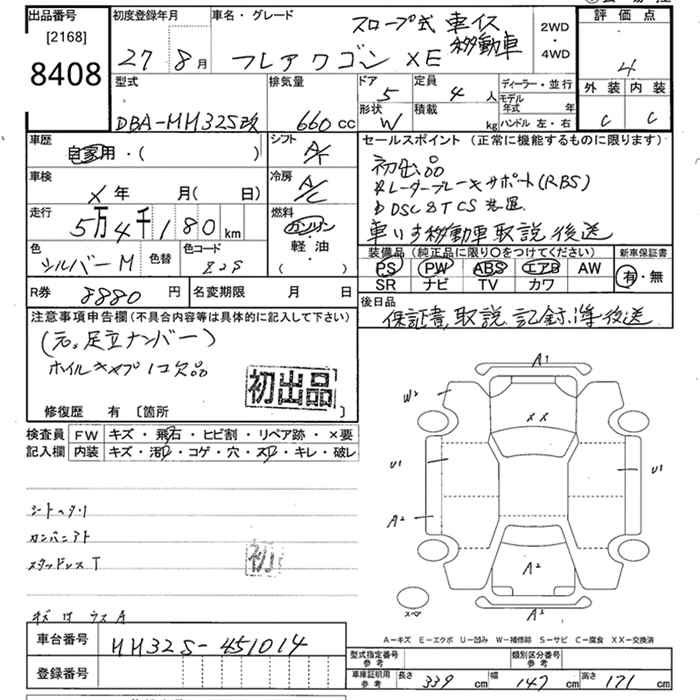 出品番号
[2168]
8408
初度登録年月
27年 8月
車名・グレード
スロープ式 車イス移動車
フレアワゴン XE
2WD
・
4WD
評価点
4
外装 内装
C C
型式
DBA-MH32S改
排気量
660 cc
ドア 5
定員 4 人
形状 W
積載 kg
ディーラー・並行
モデル年式 年
ハンドル 左・右
車歴
自家用・( )
シフト
A/F
車検
X 年 月( 日)
冷房
A/C
走行
5万4千180 km
燃料
ガソリン
軽・油
( )
色
シルバーM
色替
色コード
Z2S
R券 8880 円
名変期限 月 日
セールスポイント (正常に機能するものに限ります)
初出品
レーダーブレーキサポート(RBS)
DSC&TCS装置
車いす移動車取説後送
装備品 (純正品に限り○をつけてください)
新車保証書
PS PW ABS エアB AW
SR ナビ TV カワ
有・無
後日品
保証書,取説,記録簿後送
注意事項申告欄(不具合内容等は具体的に記入して下さい)
(元,足立ナンバー)
ホイルキャップ1コ欠品
初出品
修復歴 有 〔箇所 〕
検査員 FW キズ・飛石・ヒビ割・リペア跡・×要
記入欄 内装 キズ・汚れ・コゲ・穴・スレ・キレ・破レ
シートヘタリ
スタッドレスT
初
車台番号 MH32S-451014
登録番号
A1
W2
XX
U1
U1
A2
A2
A3
スペア
A-キズ E-エクボ U-凹み W-補修跡 S-サビ C-腐食 XX-交換済
型式指定番号 参考
類別区分番号 参考
車庫証明用 参考 長さ 339 cm 幅 147 cm 高さ 171 cm